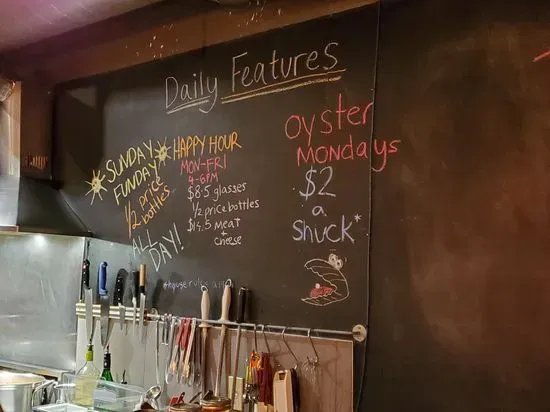 Daily Features
SUNDAY
FUNDAY
1/2 price
bottles
ALL
DAY!
HAPPY HOUR
MON-FRI
4-6PM
$8.5 glasses
1/2 price bottles
$14.5 meat
+
cheese
oyster
Mondays
$2
a
shuck*
*house rules apply